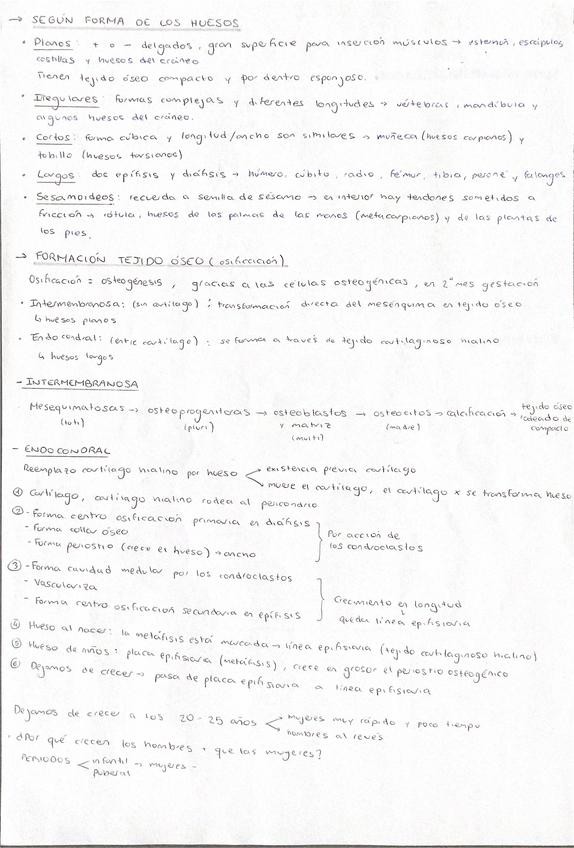 → SEGÚN FORMA DE LOS HUESOS
• Planos: + o - delgados, gran superficie para inserción músculos → esternón, escápulas,
costillas y huesos del cráneo
Tienen tejido óseo compacto y por dentro esponjoso.
• Irregulares: formas complejas y diferentes longitudes → vértebras, mandíbula y
algunos huesos del cráneo.
• Cortos: forma cúbica y longitud/ancho son similares → muñeca (huesos carpianos) y
tobillo (huesos tarsianos)
• Largos: dos epífisis y diáfisis → húmero, cúbito, radio, fémur, tibia, peroné y falanges
• Sesamoideos: recuerda a semilla de sésamo → en interior hay tendones sometidos a
fricción → rótula, huesos de las palmas de las manos (metacarpianos) y de las plantas de
los pies.
→ FORMACIÓN TEJIDO ÓSEO (osificación)
Osificación = osteogénesis, gracias a las células osteogénicas, en 2º mes gestación
• Intermembranosa: (sin cartílago) : transformación directa del mesénquima en tejido óseo
↳ huesos planos
• Endocondral: (entre cartílago) : se forma a través de tejido cartilaginoso hialino
↳ huesos largos
- INTERMEMBRANOSA
Mesequimatosas → osteoprogenitoras → osteoblastos → osteocitos → calcificación → tejido óseo
(toti) (pluri) y matriz (madre) rodeado de
(multi) compacto
- ENDOCONDRAL
Reemplazo cartílago hialino por hueso → existencia previa cartílago
→ muere el cartílago, el cartílago x se transforma hueso
① Cartílago, cartílago hialino rodea al pericondrio
② - Forma centro osificación primaria en diáfisis
- Forma collar óseo
- Forma periostio (crece el hueso) → ancho
Por acción de
los condroclastos
③ - Forma cavidad medular por los condroclastos
- Vasculariza
- Forma centro osificación secundaria en epífisis
Crecimiento en longitud
↓
queda línea epifisiaria
④ Hueso al nacer: la metáfisis está marcada → línea epifisiaria (tejido cartilaginoso hialino)
⑤ Hueso de niños: placa epifisiaria (metáfisis), crece en grosor el periostio osteogénico
⑥ Dejamos de crecer → pasa de placa epifisiaria a línea epifisiaria
Dejamos de crecer a los 20-25 años → Mujeres muy rápido y poco tiempo
→ hombres al revés
• ¿Por qué crecen los hombres + que las mujeres?
PERIODOS < infantil → mujeres -
puberal